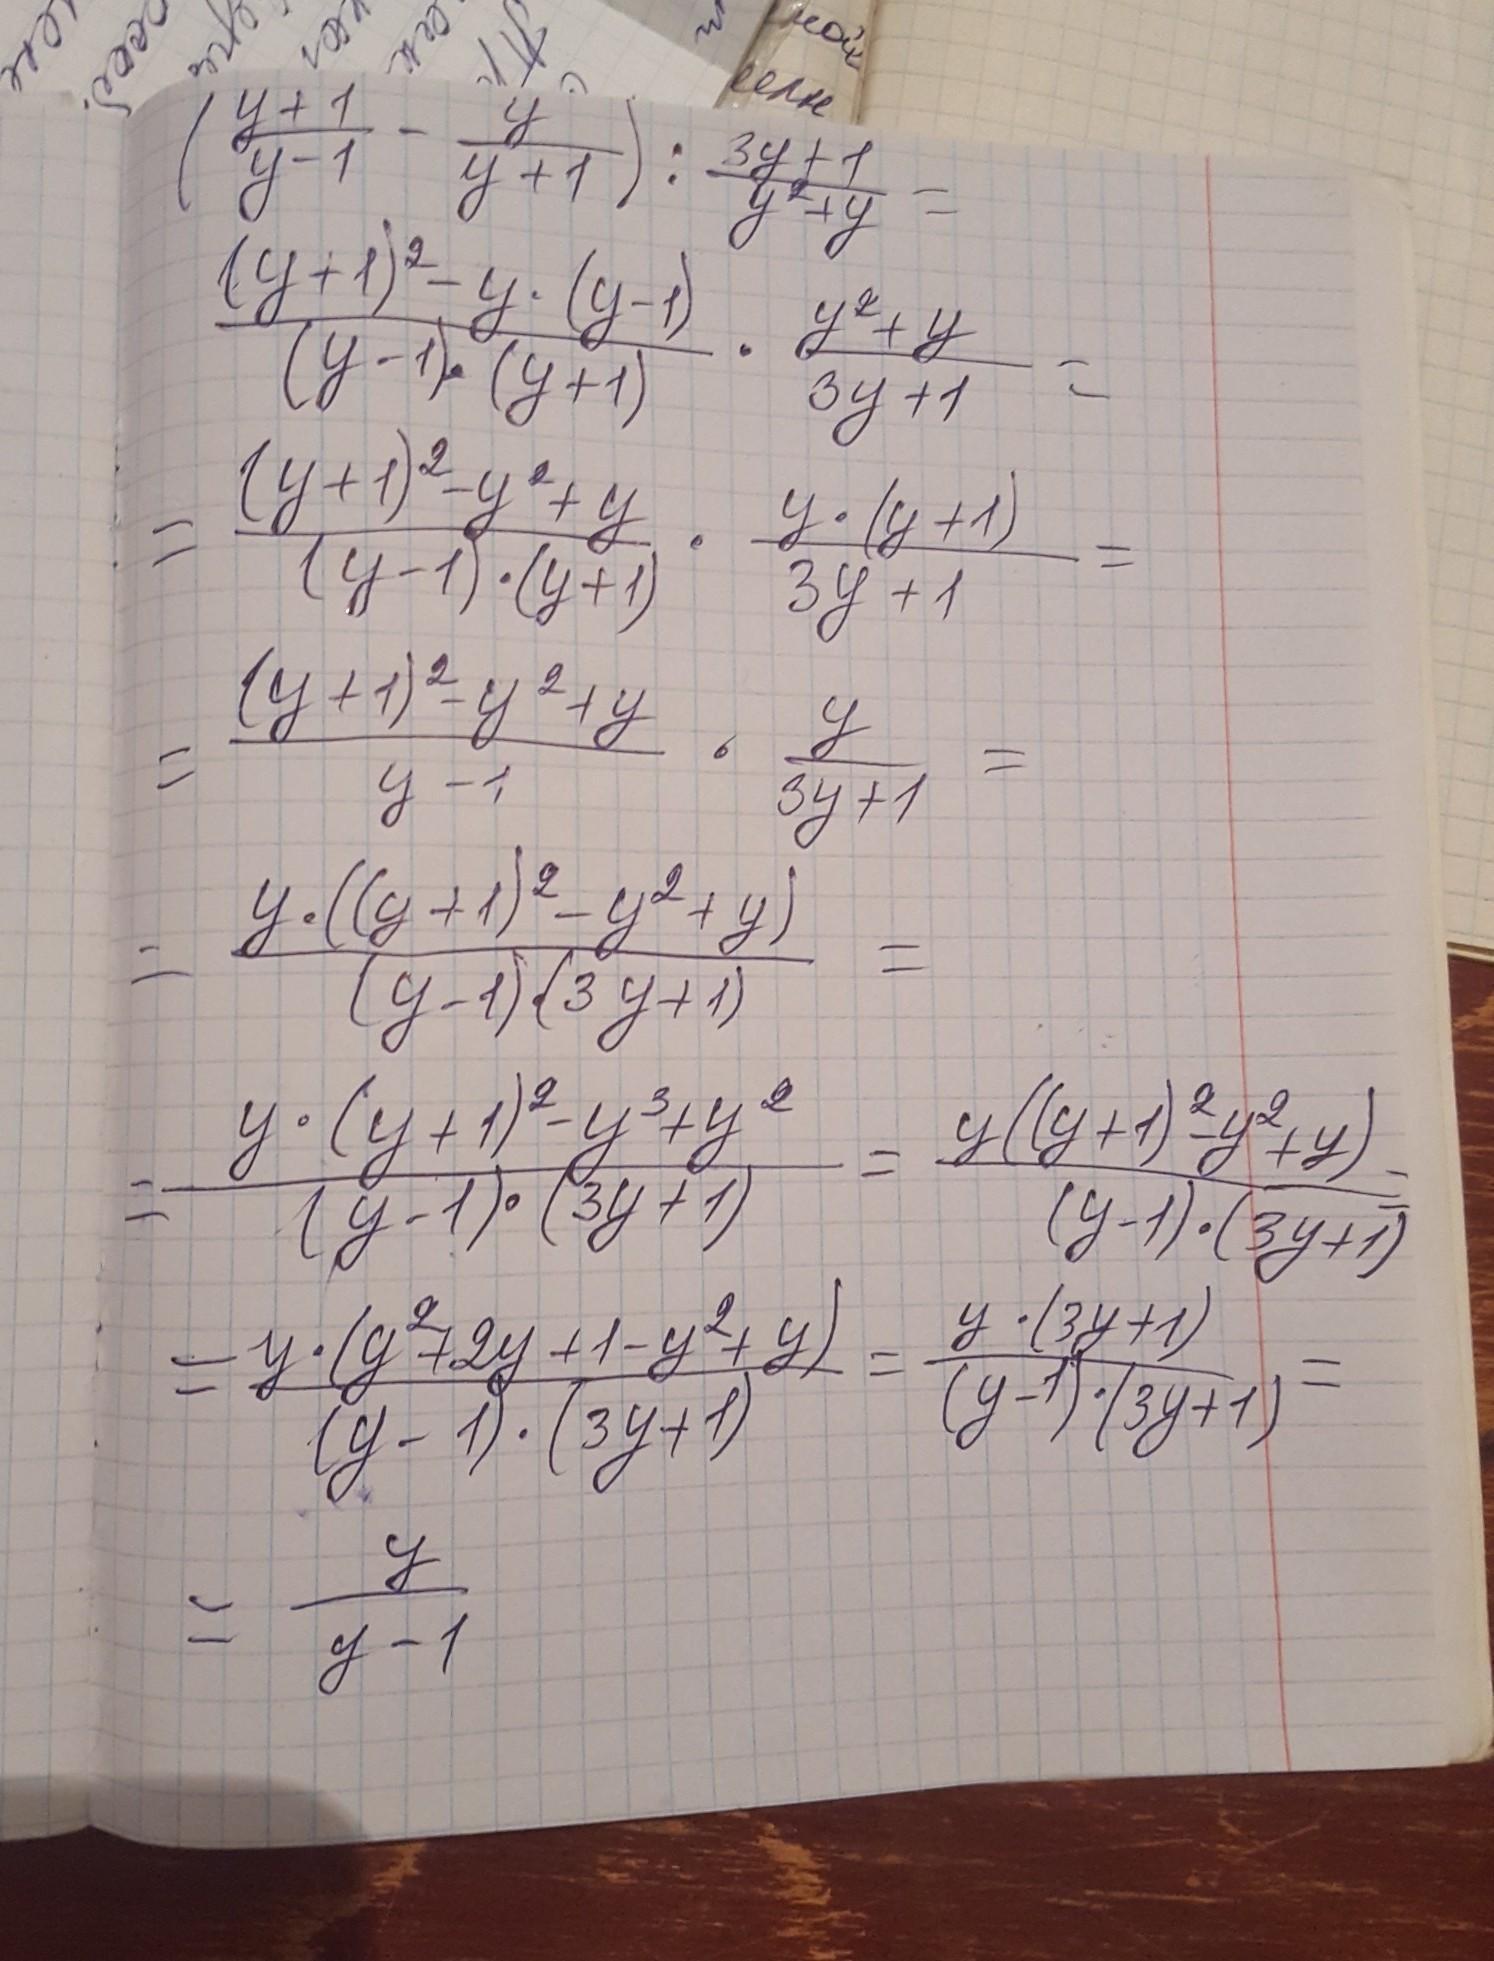 ной
или
( (y+1)/(y-1) - y/(y+1) ) : (3y+1)/(y²+y) =
((y+1)² - y·(y-1))/((y-1)·(y+1)) · (y²+y)/(3y+1) =
= ((y+1)² - y² + y)/((y-1)·(y+1)) · (y·(y+1))/(3y+1) =
= ((y+1)² - y² + y)/(y-1) · y/(3y+1) =
= (y·((y+1)² - y² + y))/((y-1)·(3y+1)) =
= (y·(y+1)² - y³ + y²)/((y-1)·(3y+1)) = (y((y+1)² - y² + y))/((y-1)·(3y+1)) =
= (y·(y²+2y+1-y²+y))/((y-1)·(3y+1)) = (y·(3y+1))/((y-1)·(3y+1)) =
= y/(y-1)